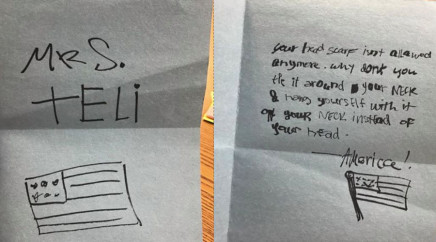 MRS.
TELi
your head scarf isnt allowed
anymore. why dont you
tie it around your NECK
& hang yourself with it
your NECK instead of
your head.
America!